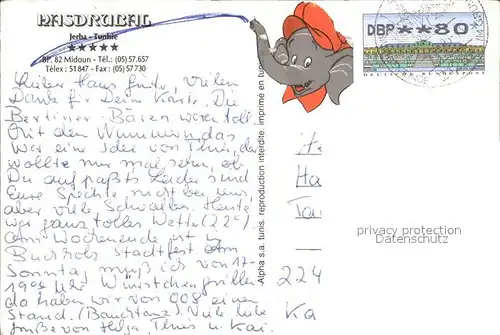 HASDRUBAL
Jerba - Tunisie
★★★★★
BP. 82 Midoun - Tél.: (05) 57.657
Télex : 51 847 - Fax : (05) 57 730
Lieber Hans Guido, vielen
Dank für Deine Karte. Die
Berliner Bären waren toll.
Mit den Nummern, das
war eine Idee von Thies, der
wollte nur mal sehn, ob
Du aufpaßt. Leider sind
Eure Spechte nicht bei uns,
aber viele Schwalben. Heute
war ganz tolles Wetter (22°)
Am Wochenende ist in
Buchholz Stadtfest. Am
Sonntag muß ich von 17-
19 Uhr Würstchen grillen
da haben wir von 08 einen
Stand. (Bauchtanz). Viele liebe
Grüße von Helga, Thies u. Kai.
Alpha s.a. tunis. reproduction interdite. imprimé en tuni
DBP**80
DEUTSCHE BUNDESPOST
Ha
224
Ka
privacy protection
Datenschutz